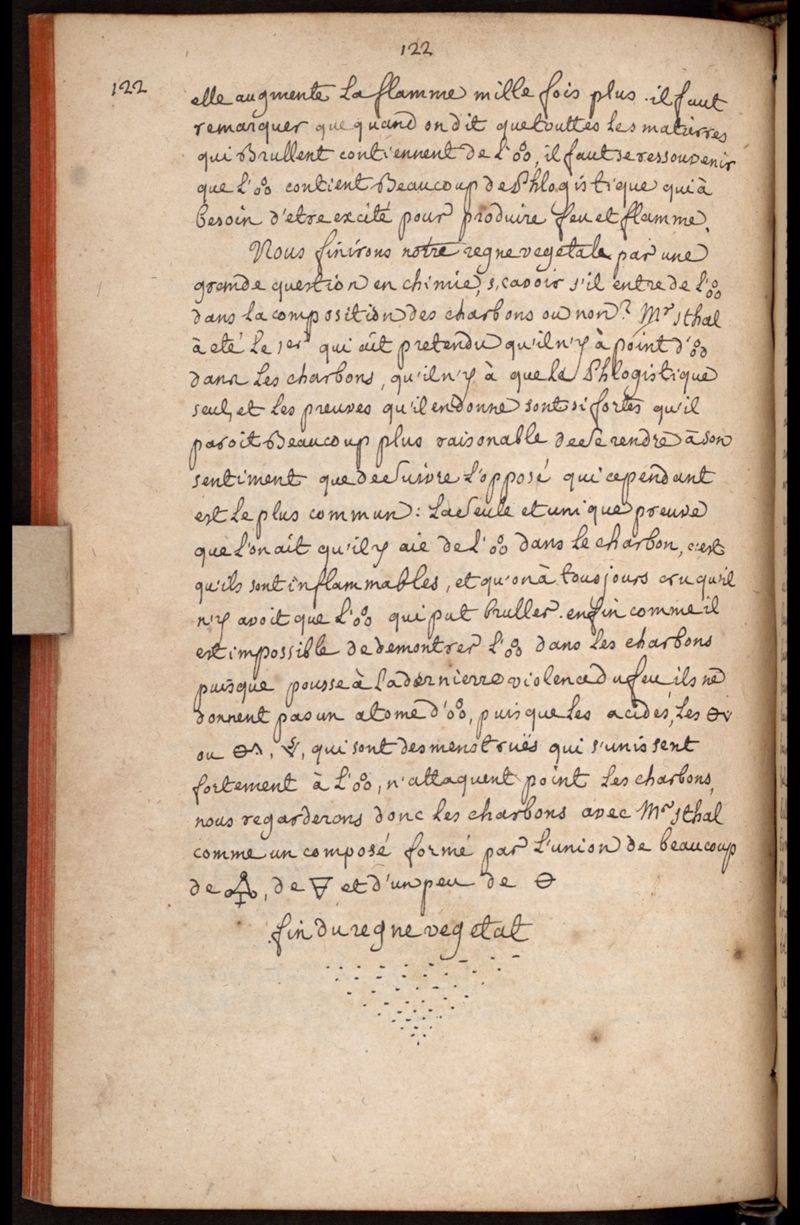 122
122
elle augmente la flamme mille fois plus. il faut
remarquer que quand on dit que touttes les matieres
qui Brullent contiennent de l'🝆, il faut se ressouvenir
que l'🝆 contient Beaucoup de Phlogistique qui à
besoin d'etre excité pour produire feu et flamme.
Nous finirons notre regne vegetale par une
grande question en chimie, sçavoir s'il entre de l'🝆
dans la compossition des charbons ou non? Mr Sthal
à eté le 1er qui ait pretendu qu'il n'y à point d'🝆
dans les charbons, qu'il n'y à que le Phlogistique
seul, et les preuves qu'il en donne sont si fortes qu'il
paroit Beaucoup plus raisonable de se rendre à son
sentiment que de suivre l'opposé qui cependant
est le plus commun: la seule et unique preuve
que l'on ait qu'il y aie de l'🝆 dans le charbon, c'est
qu'ils sont inflammables, et qu'on à tousjours cru qu'il
n'y avoit que l'🝆 qui put bruller. enfin comme il
est impossible de demontrer l'🝆 dans les charbons
puisque pousse à la dernierre violence du feu ils ne
donnent pas un atome d'🝆, puisque les acides, les
ou qui sont des menstruës qui s'unissent
fortement à l'🝆, n'attaquent point les charbons,
nous regarderons donc les charbons avec Mr Sthal
comme un composé formé par l'union de beaucoup
de 🜍, de 🜃 et d'un peu de 🜔
fin du regne vegetal